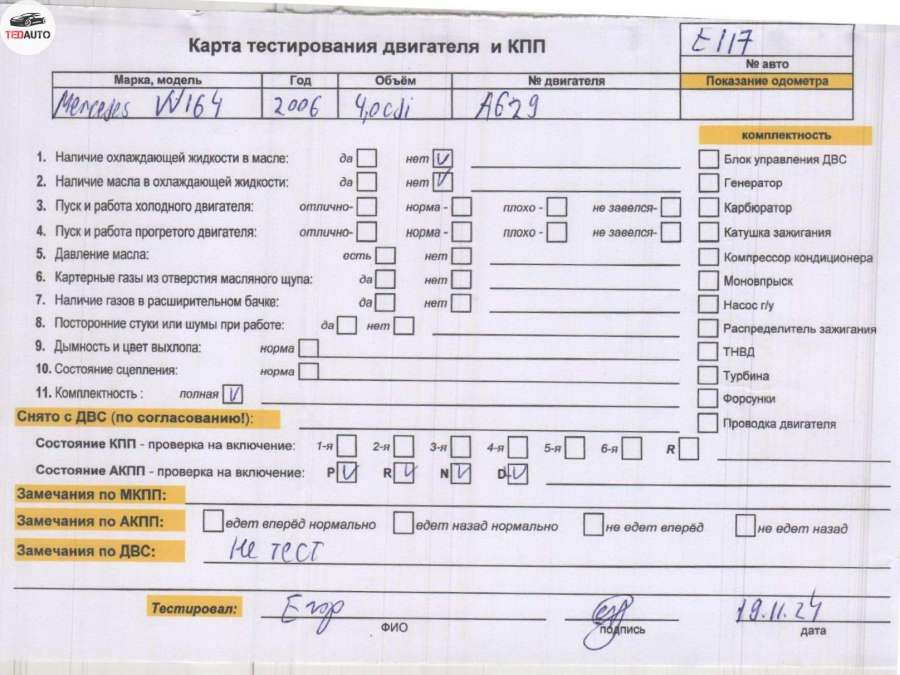 TEDAUTO
E117
Карта тестирования двигателя и КПП
№ авто
Марка, модель Год Объём № двигателя Показание одометра
Mercedes W164 2006 4,0cdi A629
комплектность
1. Наличие охлаждающей жидкости в масле: да нет V Блок управления ДВС
2. Наличие масла в охлаждающей жидкости: да нет V Генератор
3. Пуск и работа холодного двигателя: отлично- норма - плохо - не завелся- Карбюратор
4. Пуск и работа прогретого двигателя: отлично- норма - плохо - не завелся- Катушка зажигания
5. Давление масла: есть нет Компрессор кондиционера
6. Картерные газы из отверстия масляного щупа: да нет Моновпрыск
7. Наличие газов в расширительном бачке: да нет Насос г/у
8. Посторонние стуки или шумы при работе: да нет Распределитель зажигания
9. Дымность и цвет выхлопа: норма ТНВД
10. Состояние сцепления: норма Турбина
11. Комплектность : полная V Форсунки
Снято с ДВС (по согласованию!): Проводка двигателя
Состояние КПП - проверка на включение: 1-я 2-я 3-я 4-я 5-я 6-я R
Состояние АКПП - проверка на включение: P V R V N V D- V
Замечания по МКПП:
Замечания по АКПП: едет вперёд нормально едет назад нормально не едет вперёд не едет назад
Замечания по ДВС: Не тест
Тестировал: Егор 19.11.24
ФИО подпись дата